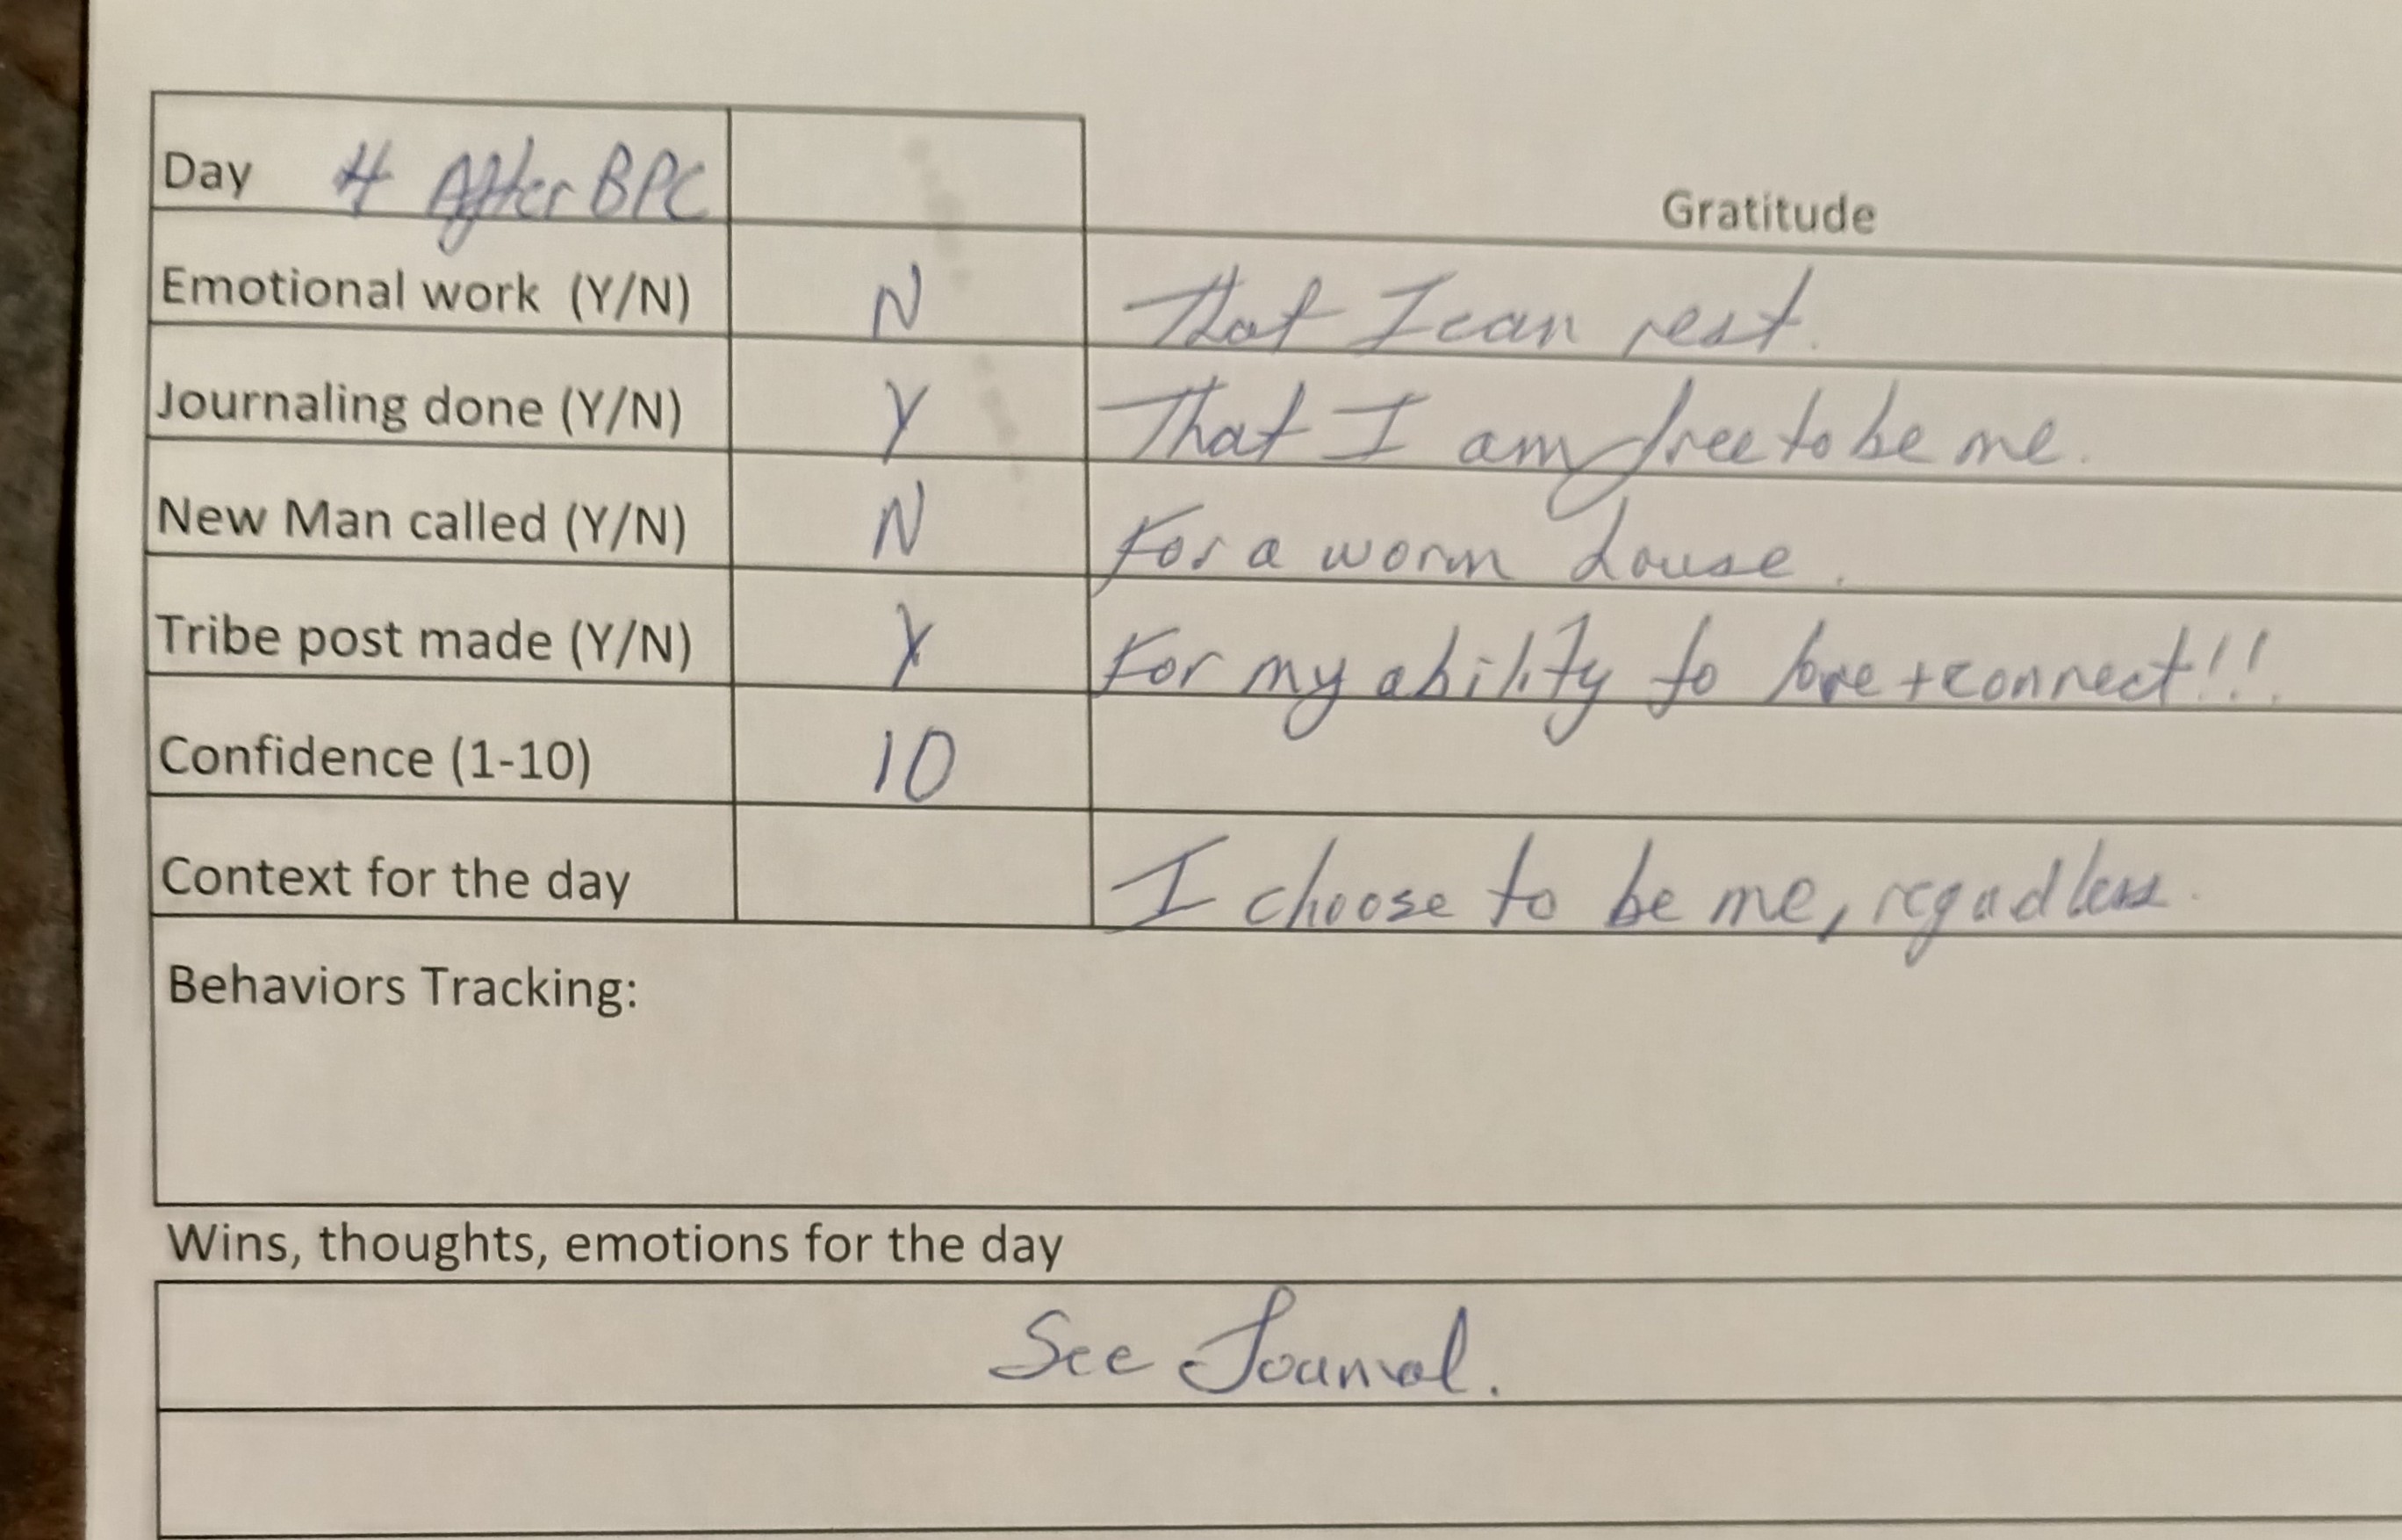 Day 4 After BPC
Gratitude
Emotional work (Y/N) N That I can rest.
Journaling done (Y/N) Y That I am free to be me.
New Man called (Y/N) N For a warm house.
Tribe post made (Y/N) Y For my ability to love + connect!!!
Confidence (1-10) 10
Context for the day I choose to be me, regadless.
Behaviors Tracking:
Wins, thoughts, emotions for the day
See Journal.